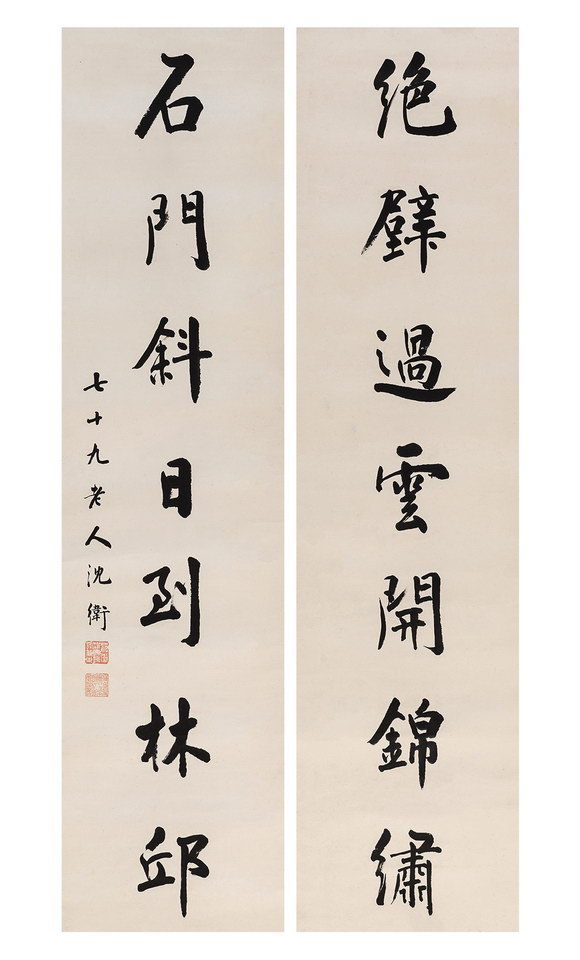 絶壁過雲開錦繡
石門斜日到林邱
七十九老人沈衛